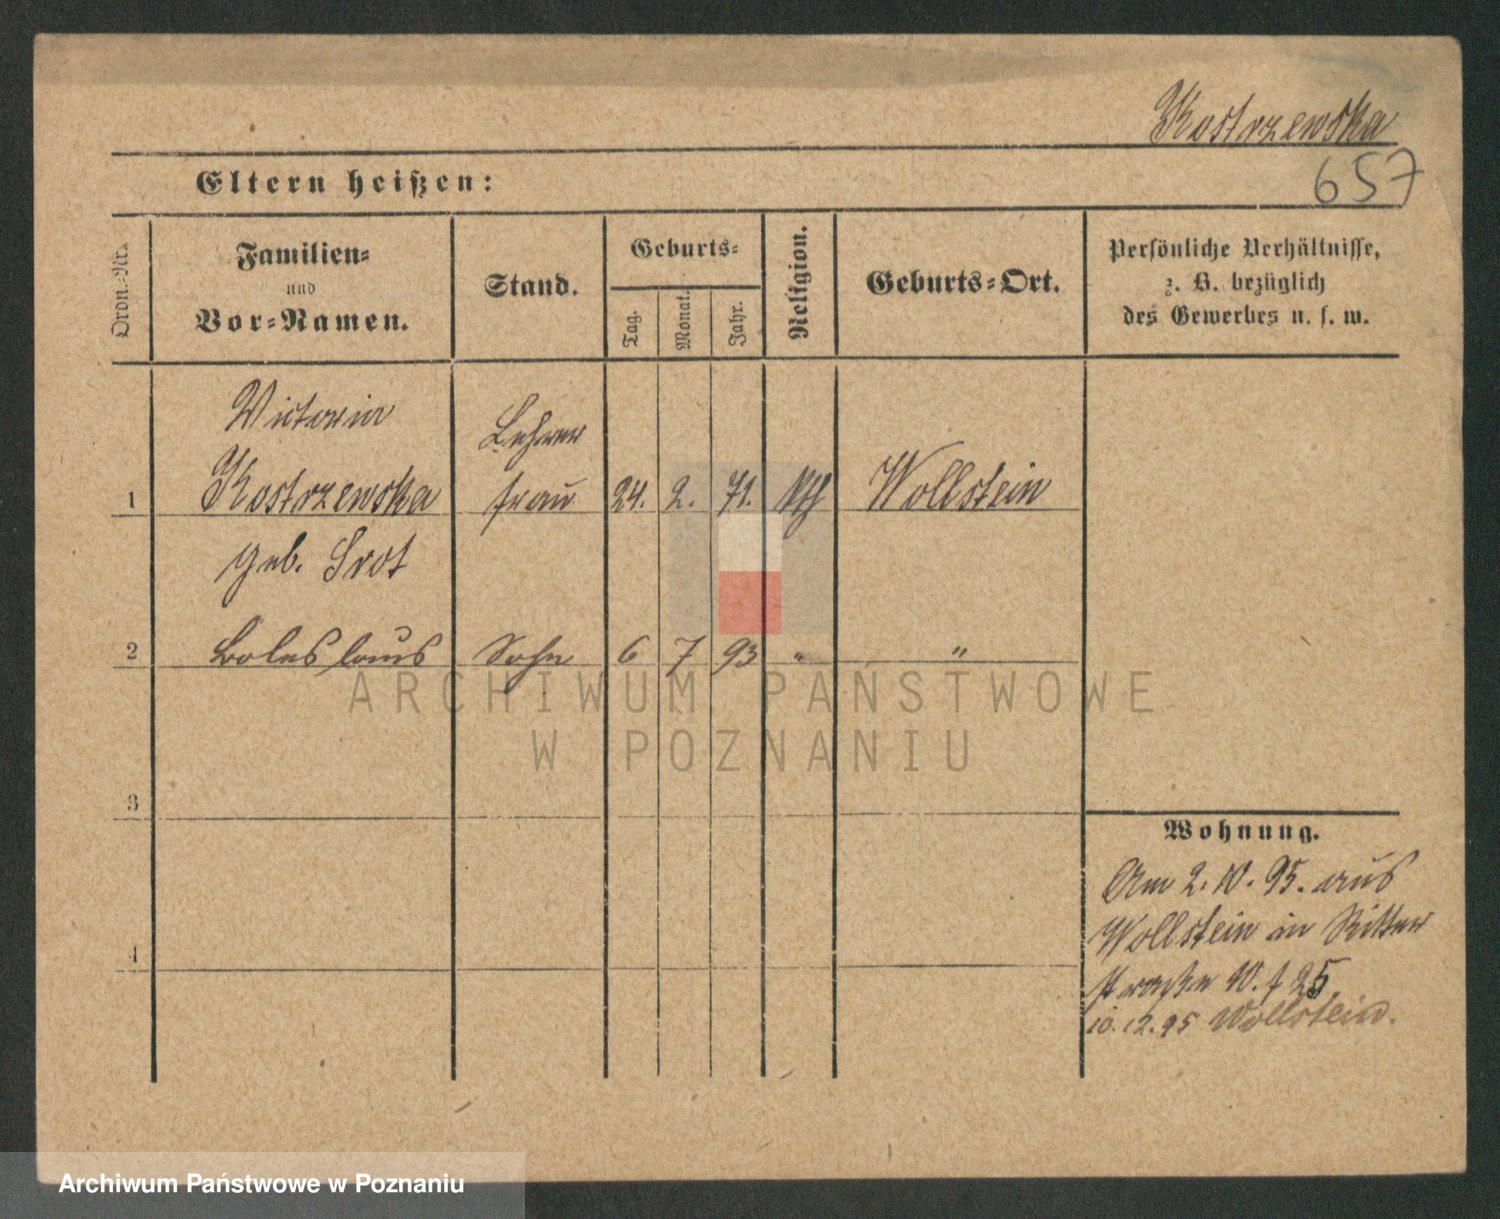 Kostrzewska
657
Eltern heißen:
Ordn.-Nr.
Familien-
und
Vor-Namen.
Stand.
Geburts-
Tag.
Monat.
Jahr.
Religion.
Geburts-Ort.
Persönliche Verhältnisse,
z. B. bezüglich
des Gewerbes u. s. w.
Victoria
Lehrer
1 Kostrzewska frau 24. 2. 71. kth Wollstein
geb. Srot
2 Boleslaus Sohn 6 7 93 " "
ARCHIWUM PAŃSTWOWE
W POZNANIU
3
Wohnung.
Am 2. 10. 95. aus
Wollstein in Ritter
4
straße 25
10. 12. 95 Wollstein.
Archiwum Państwowe w Poznaniu